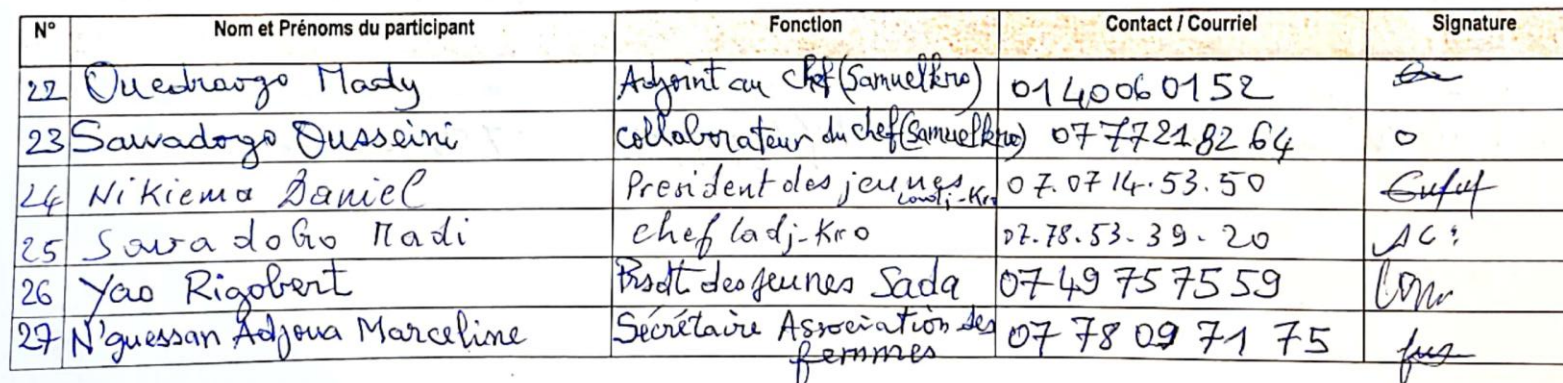 N° Nom et Prénoms du participant Fonction Contact / Courriel Signature
22 Ouedraogo Mady Adjoint au chef (Samuelkro) 0140060152
23 Sawadogo Ousseini collaborateur du chef (Samuelkro) 0777218264
24 Nikiema Daniel President des jeunes 07.07 14.53.50
25 Sawadogo Madi chef ladj-Kro 07.78.53-39-20
26 Yao Rigobert Prsdt des jeunes Sada 07 49 75 75 59
27 N'guessan Adjoua Marceline Secrétaire Association des femmes 07 78 09 71 75